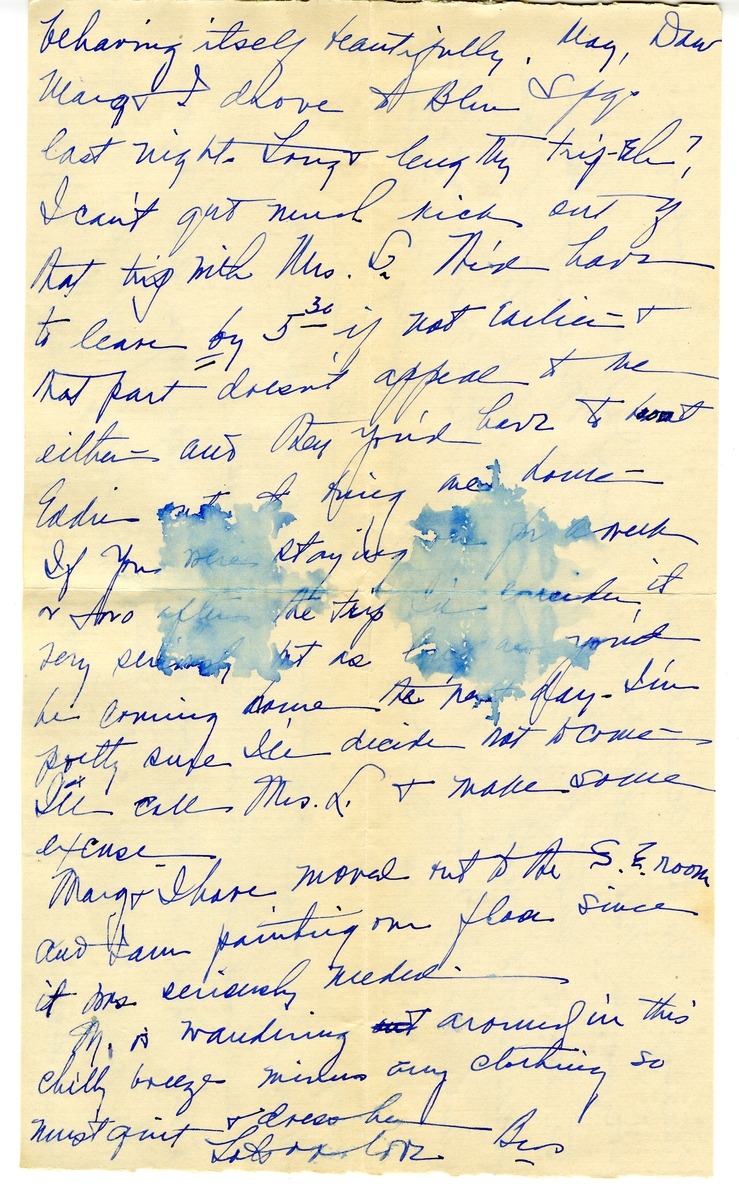 behaving itself beautifully. May, Daw
Marg & I drove to Blue Spgs
last night. Long & lengthy trip - Eh?,
I can't get much kick out of
that trip with Mrs. L. We'd have
to leave by 5 30 if not earlier &
that part doesn't appeal to me
either and then you'd have to
Eddie out to bring me home
If you were staying for a week
or two after the trip I'd consider it
very seriously but as long as you'd
be coming home the next day - I'm
pretty sure I'll decide not to come
I'll call Mrs. L. & make some
excuse
Marg & I have moved out to the S.E. room
and I am painting our floor since
it was seriously needed.
M. is wandering out around in this
chilly breeze minus any clothing so
must quit & dress her
Lots of love Bess